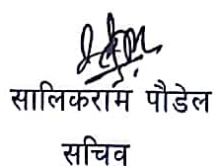 सालिकराम पौडेल
सचिव